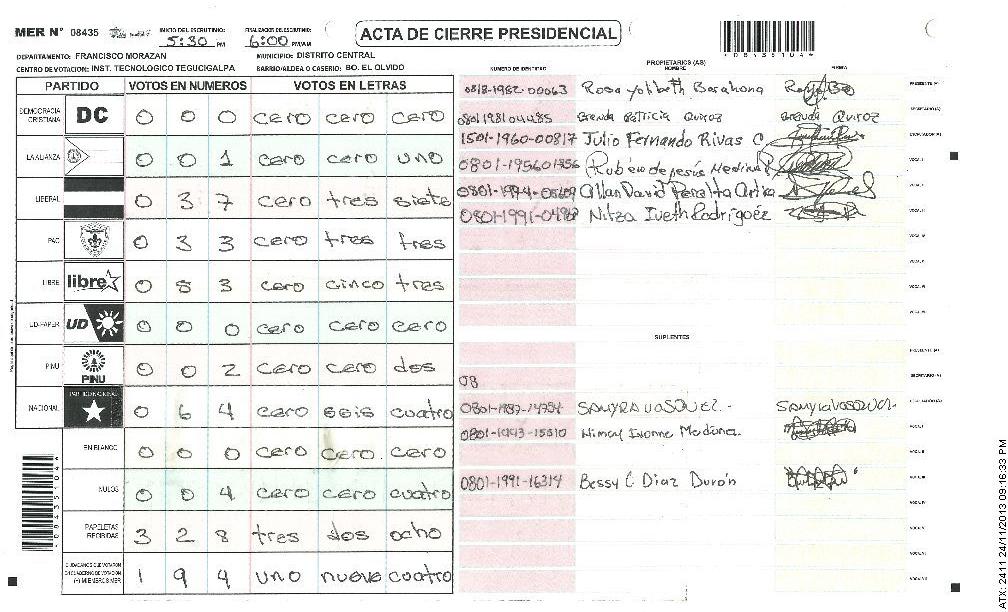 MER N° 08435 INICIO DEL ESCRUTINIO: 5:30 PM FINALIZACION DEL ESCRUTINIO: 6:00 PM/AM
ACTA DE CIERRE PRESIDENCIAL
*084351044*
DEPARTAMENTO: FRANCISCO MORAZAN MUNICIPIO: DISTRITO CENTRAL
CENTRO DE VOTACION: INST. TECNOLOGICO TEGUCIGALPA BARRIO/ALDEA O CASERIO: BO. EL OLVIDO
PARTIDO VOTOS EN NUMEROS VOTOS EN LETRAS
DEMOCRACIA CRISTIANA DC 0 0 0 cero cero cero
LA ALIANZA 0 0 1 cero cero uno
LIBERAL 0 3 7 cero tres siete
PAC 0 3 3 cero tres tres
LIBRE libre 0 8 3 cero cinco tres
UD-FAPER UD 0 0 0 cero cero cero
PINU PINU 0 0 2 cero cero dos
NACIONAL PARTIDO NACIONAL 0 6 4 cero seis cuatro
EN BLANCO 0 0 0 cero cero cero
NULOS 0 0 4 cero cero cuatro
PAPELETAS RECIBIDAS 3 2 8 tres dos ocho
CIUDADANOS QUE VOTARON EN CUADERNO DE VOTACION (+) MIEMBROS MER 1 9 4 uno nueve cuatro
PROPIETARIOS (AS)
NUMERO DE IDENTIDAD NOMBRE FIRMA
0818-1982-00063 Rosa Yolibeth Barahona PRESIDENTE (A)
0801 1981 04485 Brenda Patricia Quiroz Brenda Quiroz SECRETARIO (A)
1501-1960-00817 Julio Fernando Rivas C ESCRUTADOR (A)
0801-195601356 Rubén de jesús Medina VOCAL I
0801-1974- Allan David Peralta
0801-1991- Nitza Iveth Rodriguéz
SUPLENTES
PRESIDENTE (A)
08 SECRETARIO (A)
0801-1987-14754 SAMYRA VASQUEZ.-
0801-1993-15510 Ivonne
0801-1991-16314 Bessy C Diaz Durón
ATX: 2411 24/11/2013 09:16:33 PM